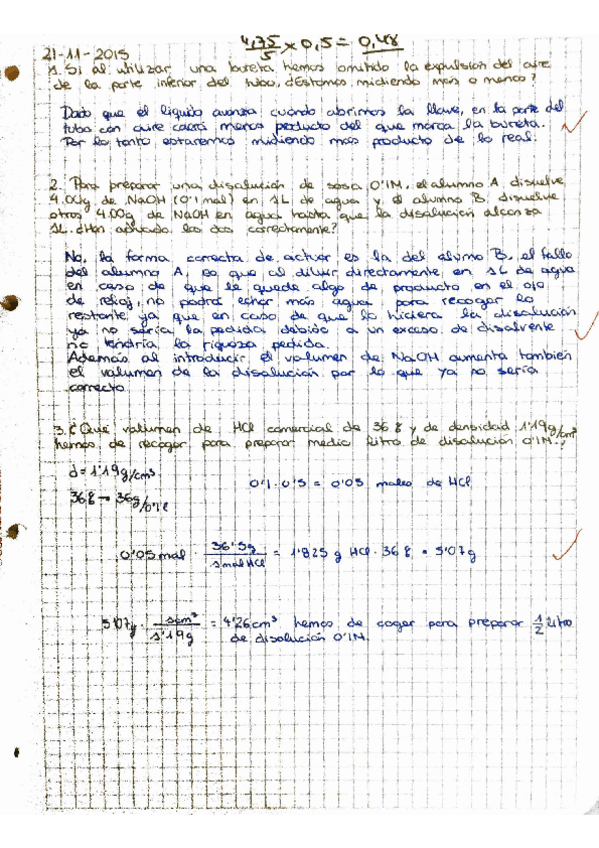 4,75/5 x 0,5 = 0,48
21-11-2015
1. Si al utilizar una bureta hemos omitido la expulsión del aire
de la parte inferior del tubo, ¿Estamos midiendo más o menos?
Dado que el líquido avanza cuando abrimos la llave, en la parte del
tubo con aire caerá menos producto del que marca la bureta.
Por lo tanto estaremos midiendo más producto de lo real.
2. Para preparar una disolución de sosa 0'1M, el alumno A disuelve
4.00g de NaOH (0'1 mol) en 1L de agua y el alumno B, disuelve
otros 4.00g de NaOH en agua hasta que la disolución alcanza
1L. ¿Han actuado los dos correctamente?
No, la forma correcta de actuar es la del alumno B, el fallo
del alumno A, es que al diluir directamente en 1L de agua
en caso de que le quede algo de producto en el
de reloj, no podrá echar más agua para recoger lo
restante, ya que en caso de que lo hiciera la disolución
ya no sería la pedida debido a un exceso de disolvente
no tendría la riqueza pedida.
Además al introducir el volumen de NaOH aumenta también
el volumen de la disolución por lo que ya no sería
correcto.
3. ¿Qué volumen de HCl comercial de 36 % y de densidad 1'19g/cm³
hemos de recoger para preparar medio litro de disolución 0'1M?
d = 1'19 g/cm³
0'1 · 0'5 = 0'05 moles de HCl
36% → 36g/
0'05 mol · 36'5g/1mol HCl = 1'825 g HCl · 36 % = 5'07g
5'07g · 1cm³/1'19g = 4'26cm³ hemos de coger para preparar 1/2 litro
de disolución 0'1M.